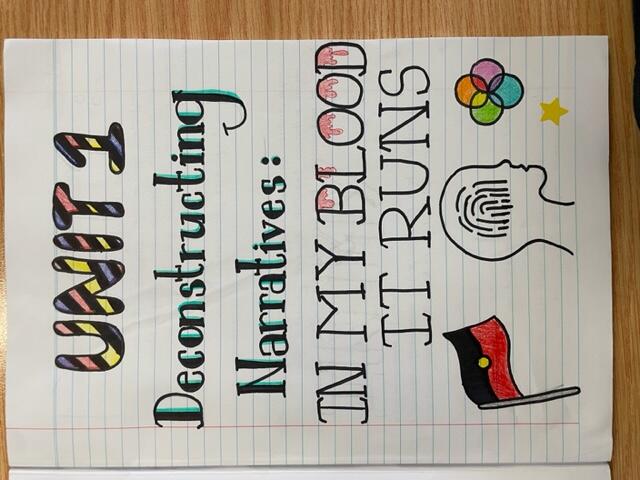 UNIT 1
Deconstructing
Narratives:
IN MY BLOOD
IT RUNS